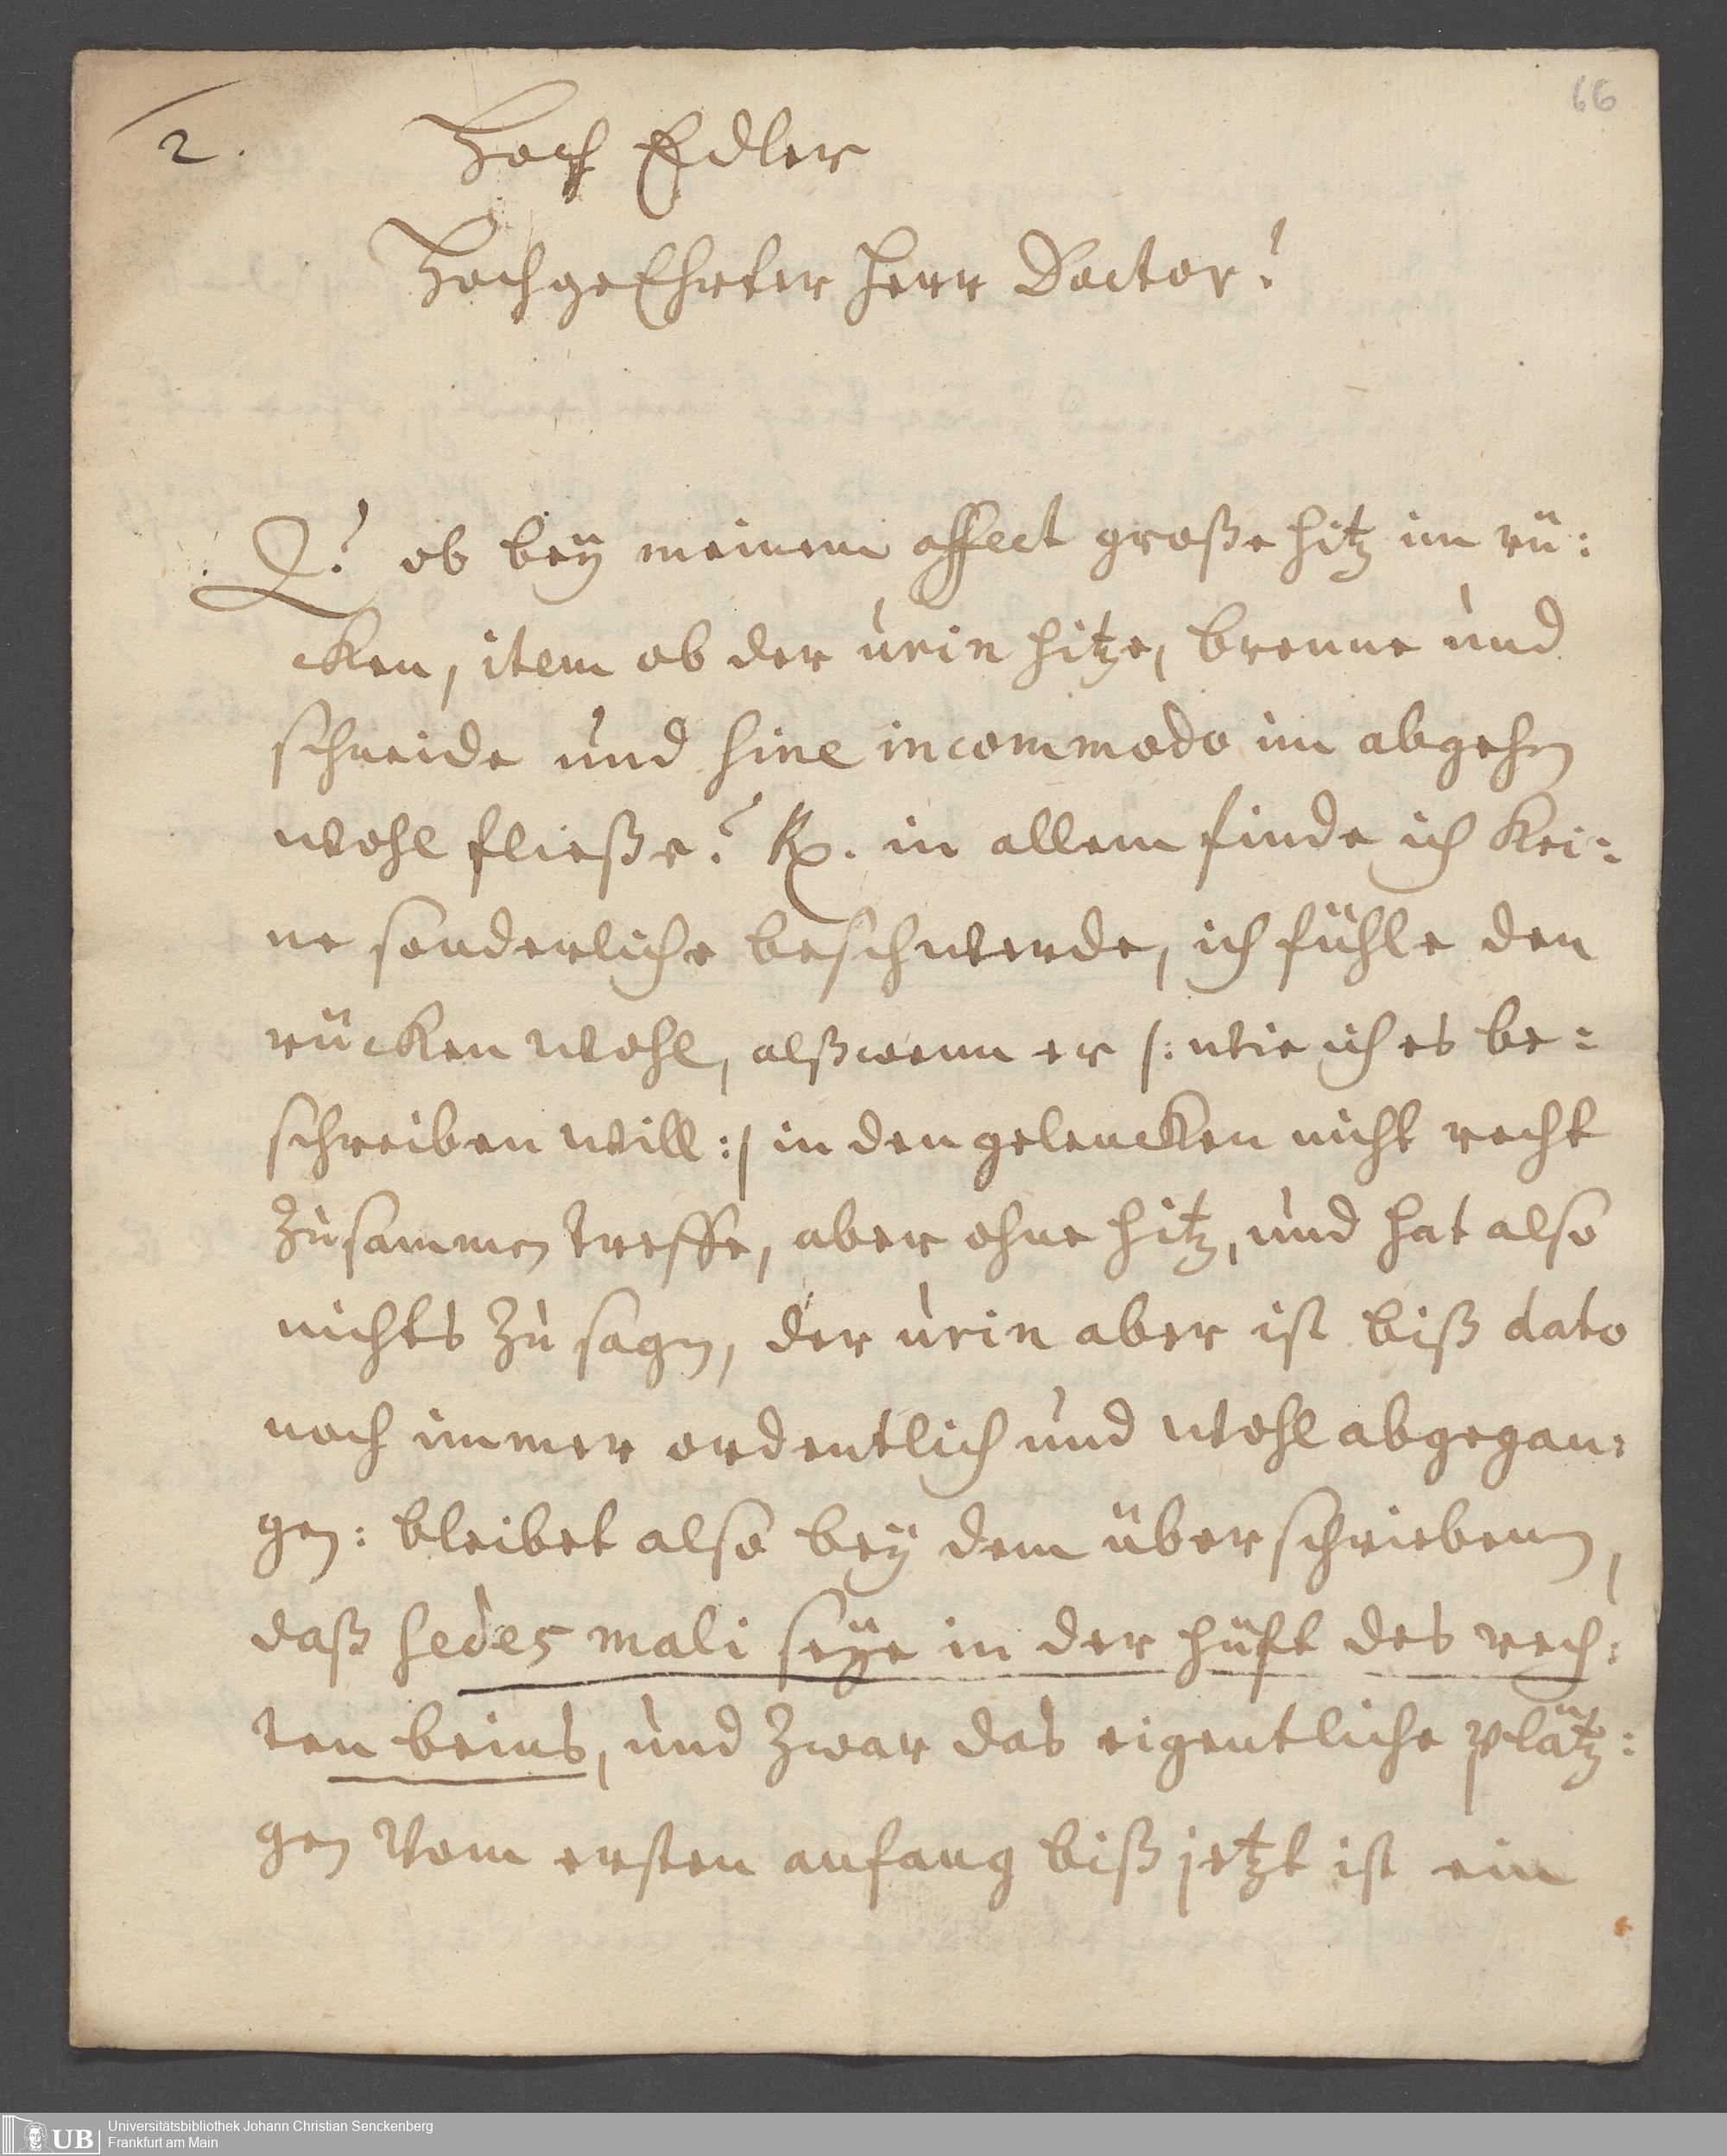 66
2.
Hoch Edler
HochgeEhrter Herr Doctor!
Q? ob bey meinem affect große hitz im rü:
cken, item ob der urin hitze, brenne und
schneide und sine incommodo im abgehn
wohl fließe? Rx. in allem finde ich kei:
ne sonderliche beschwerde, ich fühle den
rücken wohl, alßwenn er /: wie ich es be:
schreiben will :/ in den gelencken nicht recht
zusammen treffe, aber ohne hitz, und hat also
nichts zu sagen, der urin aber ist biß dato
noch immer ordentlich und wohl abgegan:
gen: bleibet also bey dem überschriebenen,
daß sedes mali seye in der hüft des rech:
ten beins, und zwar das eigentliche plätz:
gen vom ersten anfang biß jetzt ist ein
UB
Universitätsbibliothek Johann Christian Senckenberg
Frankfurt am Main